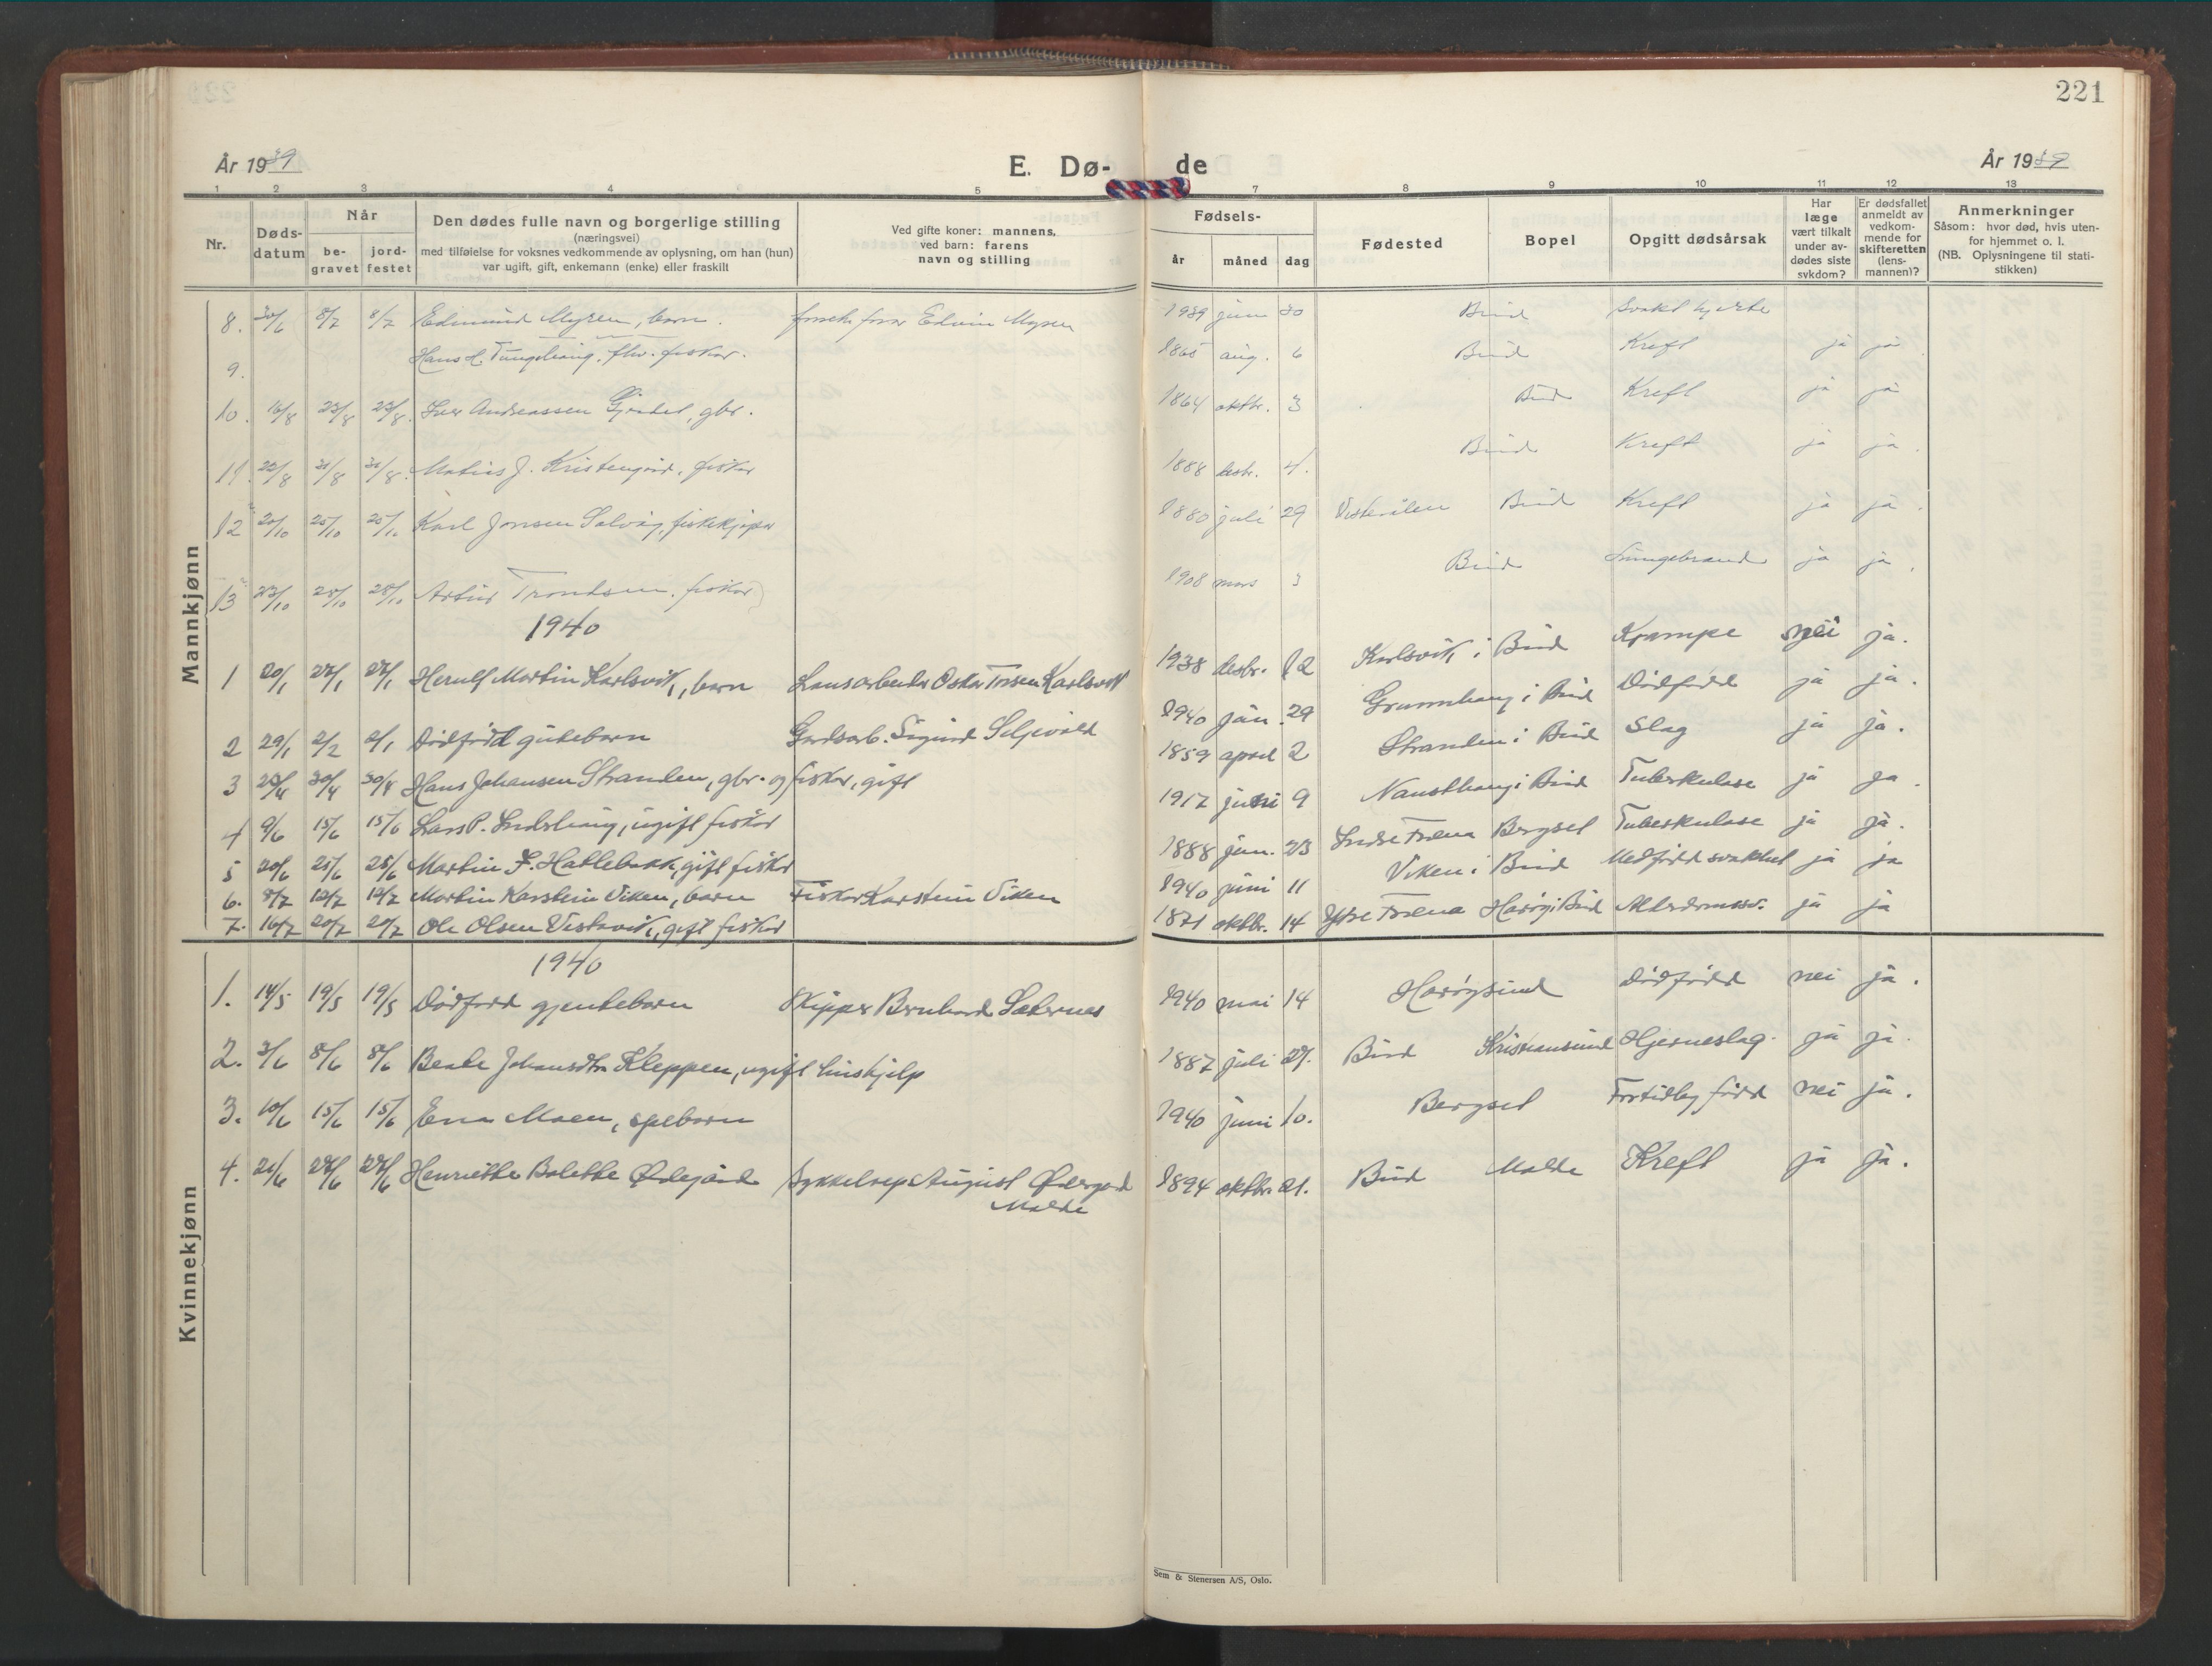 221
År 1939
E. Dø-
de
År 1939
1 2 3 4 5 7 8 9 10 11 12 13
Nr.
Døds-
datum
Når
be-
gravet
jord-
festet
Den dødes fulle navn og borgerlige stilling
(næringsvei)
med tilføielse for voksnes vedkommende av oplysning, om han (hun)
var ugift, gift, enkemann (enke) eller fraskilt
Ved gifte koner: mannens,
ved barn: farens
navn og stilling
Fødsels-
år måned dag
Fødested
Bopel
Opgitt dødsårsak
Har
læge
vært tilkalt
under av-
dødes siste
sykdom?
Er dødsfallet
anmeldt av
vedkom-
mende for
skifteretten
(lens-
mannen)?
Anmerkninger
Såsom: hvor død, hvis uten-
for hjemmet o. l.
(NB. Oplysningene til stati-
stikken)
Mannkjønn
8. 30/6 8/7 8/7 Edmund Myren, barn. Edvin Myren 1939 juni 30 Bud Svakt hjerte
9. Hans H. fhv. fisker. 1865 aug. 6 Bud Kreft ja ja.
10. 16/8 23/8 23/8. Iver Andreassen gbr. 1864 oktbr. 3 Bud Kreft ja ja
11. 22/8 31/8 31/8. Matias J. Kristengård, fisker 1888 desbr. 4. Bud Kreft ja ja.
12 20/10 25/10 25/10 Karl Jonsen Solvåg, fiskekjøper 1880 juli 29 Vesterålen Bud Kreft ja ja.
13 23/10 28/10 28/10 Artur Trondsen. fisker 1908 mars 3 Bud Lungebrand ja ja.
1940
1 20/1 27/1 27/1 Herulf Martin Karlsvik, barn Lausarbeider Oskar Karlsvik 1938 desbr. 12 Karlsvik i Bud Krampe nei ja.
2 29/1 2/2 2/1 Dødfødd gutebarn Gardsarb. Sigurd Seljevold 1940 jan. 29 i Bud Dødfødd ja ja.
3 30/4 30/4 Hans Johansen Stranden, gbr. og fisker, gift 1859 april 2 Stranden i Bud Slag ja ja.
4 9/6 15/6 15/6 Lars P. ugift fisker 1917 juni 9 Nausthaug i Bud Tuberkulose ja ja.
5 20/6 25/6 25/6 Martin F. Hatlebakk, gift fisker 1888 jan. 23 Indre Fræna Bergset Tuberkulose ja ja.
6. 8/7 12/7 12/7 Martin Karstein Viken, barn Fisker Karstein Viken 1940 juni 11 Viken i Bud Medfødd svakhet ja ja
7. 16/7 20/7 20/7 Ole Olsen Vestavik, gift fisker 1871 oktbr. 14 Ytre Fræna Harøy i Bud ja ja
Kvinnekjønn
1940
1. 14/5 19/5 19/5 Dødfødd gjentebarn Skipper Bernhard Sæternes 1940 mai 14 Harøysund Dødfødd nei ja.
2. 3/6 8/6 8/6 Beate Johansdtr. Kleppen, ugift hushjelp 1887 juli 27. Bud Kristiansund Hjerneslag. ja ja.
3. 10/6 15/6 15/6 Erna Moen, spebarn 1940 juni 10. Bergset Fortidleg fødd nei ja.
4. 21/6 27/6 27/6 Henriette Bolette Ødegård Sykkelrep August Ødegård 1894 oktbr. 21. Bud Molde Kreft ja ja.
Molde
Sem & Stenersen A/S, Oslo.